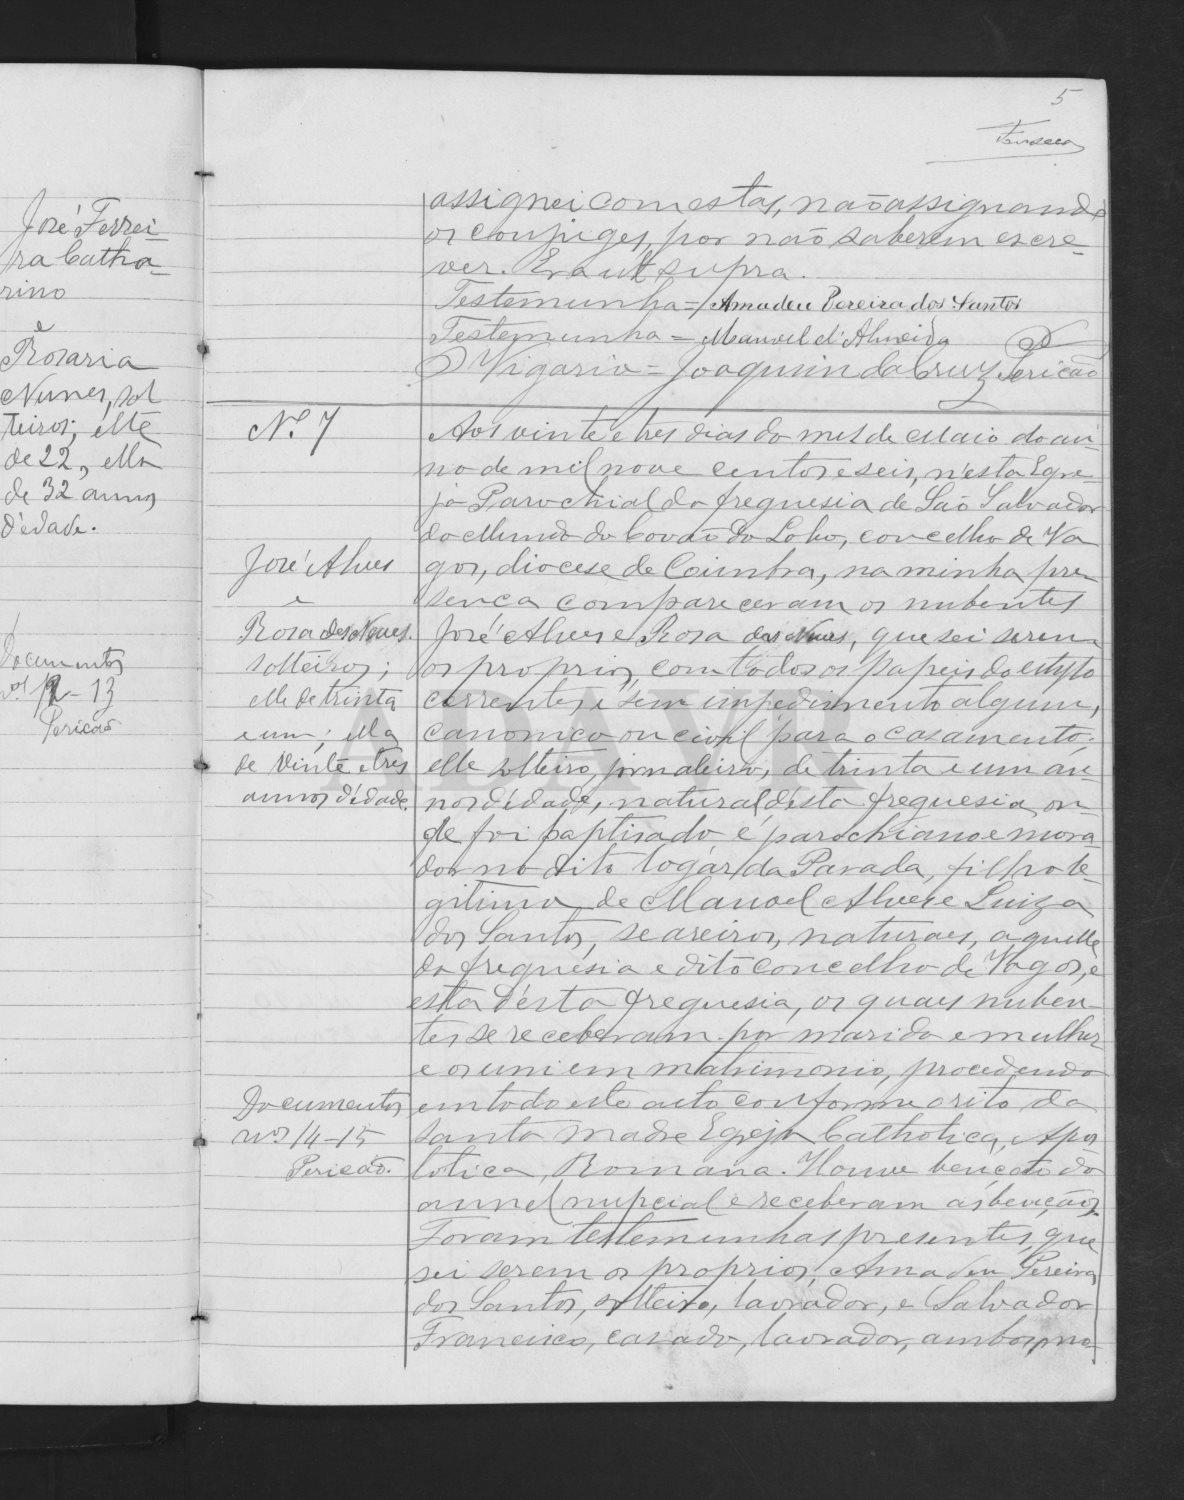 5
Fonseca
José Ferrei-
ra Catha-
rino
e
Rosaria
Nunes, sol
teiros; elle
de 22, ella
de 32 annos
d'edade.
Documentos
nos 12-13
Pericão
assignei com estas, não assignando
os conjuges, por não saberem escre-
ver. Era ut supra.
Testemunha = Amadeu Pereira dos Santos
Testemunha = Manoel d'Almeida
O Vigario = Joaquim da Cruz Pericão
N.º 7
José Alves
e
Rosa das Neves.
solteiros;
elle de trinta
e um; ella
de vinte e tres
annos d'edade.
Documentos
nos 14-15
Pericão.
Aos vinte e tres dias do mes de Maio do an-
no de mil nove centos e seis, n'esta Egre-
ja Parochial da freguesia de São Salvador
do Mundo do Covão do Lobo, concelho de Va
gos, diocese de Coimbra, na minha pre-
sença compareceram os nubentes
José Alves e Rosa das Neves, que sei serem
os proprios, com todos os papeis do estylo
correntes, e sem impedimento algum,
canonico ou civil para o casamento;
elle solteiro, jornaleiro, de trinta e um an-
nos d'edade, natural d'esta freguesia, on-
de foi baptisado e parochiano e mora-
dor no dito logar da Parada, filho le-
gitimo de Manoel Alves e Luiza
dos Santos, seareiros, naturaes, aquelle
da freguesia e dito concelho de Vagos, e
esta d'esta freguesia, os quaes nuben-
tes se receberam por marido e mulher
e os uni em matrimonio, procedendo
em todo este acto conforme o rito da
Santa Madre Egreja Catholica, Apos
tolica, Romana. Houve benção do
annel nupcial e receberam as bençãos.
Foram testemunhas presentes, que
sei serem os proprios, Amadeu Pereira
dos Santos, solteiro, lavrador, e Salvador
Francisco, casado, lavrador, ambos, mo-
ADAVR